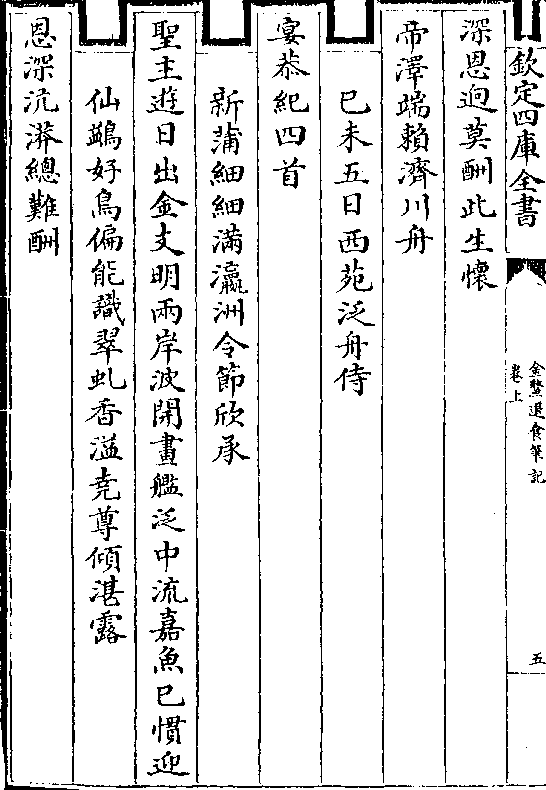 欽定四庫全書
金鰲退食筆記
卷上
五
深恩逈莫酬此生懷
帝澤端賴濟川舟
已未五日西苑泛舟侍
宴恭紀四首
新蒲細細滿瀛洲令節欣承
聖主遊日出金支明兩岸波開畫艦泛中流嘉魚已慣迎
仙鷁好鳥偏能識翠虬香溢堯尊傾湛露
恩深沆漭總難酬